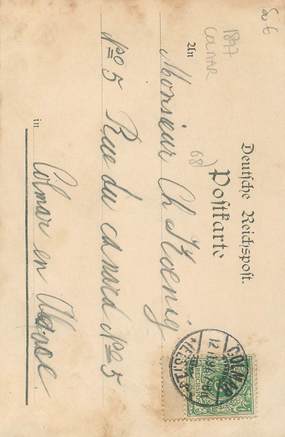 50 €
1897
COLMAR
68)
Deutsche Reichspost.
Postkarte
An
Monsieur Ch Hoenig
No 5 Rue du canard No 5
in
Colmar en Alsace.
COLMAR
12
(ELS.)